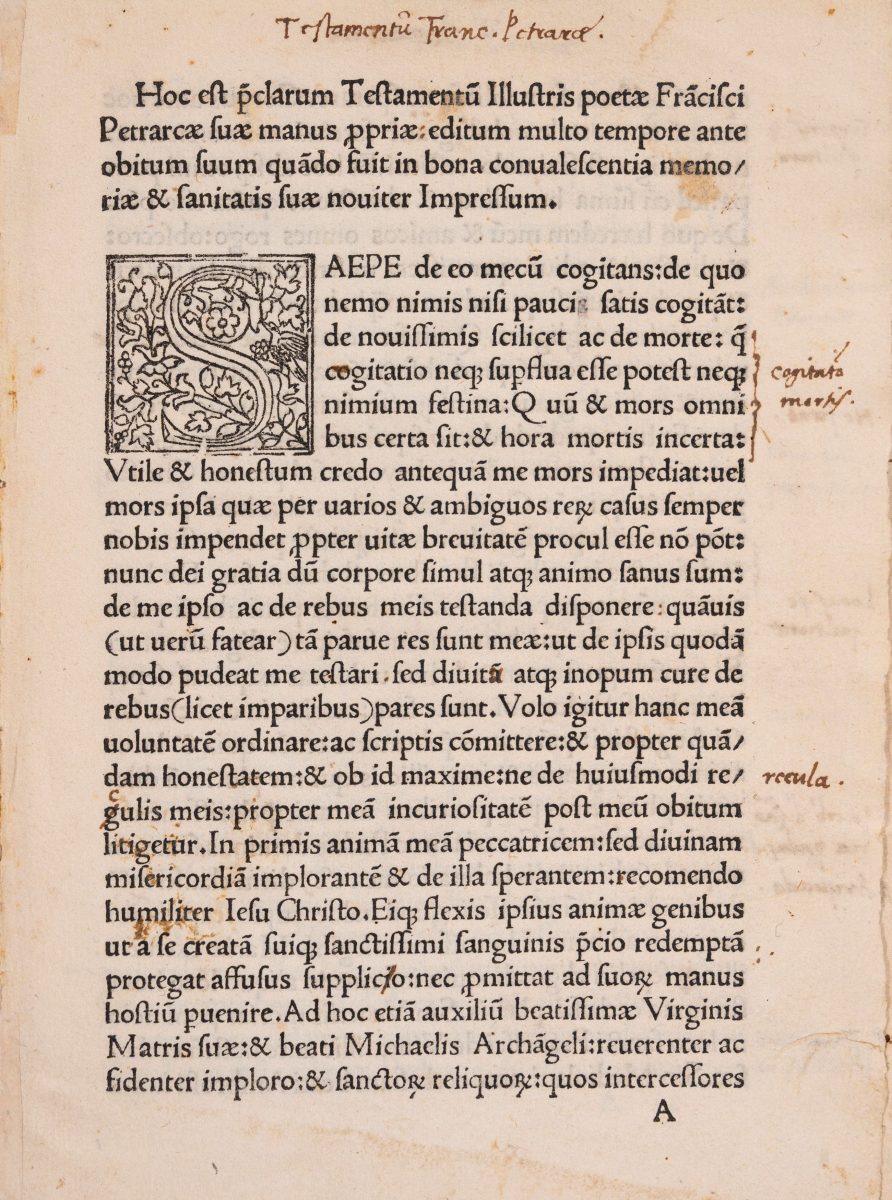 Testamentū Franc. Petrarcæ.
Hoc est p̄clarum Testamentū Illustris poetæ Frāciſci
Petrarcæ ſuæ manus ꝓpriæ: editum multo tempore ante
obitum ſuum quādo fuit in bona conualeſcentia memo/
riæ & ſanitatis ſuæ nouiter Impreſſum.
SAEPE de eo mecū cogitans: de quo
nemo nimis niſi pauci satis cogitāt:
de nouiſſimis ſcilicet ac de morte: q̄
cogitatio neqꝫ suꝑflua eſſe potest neqꝫ
cogitatio
nimium feſtina: Q uū & mors omni
mortis.
bus certa ſit: & hora mortis incerta:
Vtile & honeſtum credo antequā me mors impediat: uel
mors ipſa quæ per uarios & ambiguos reꝝ caſus ſemper
nobis impendet ꝓpter uitæ breuitatē procul eſſe nō pōt:
nunc dei gratia dū corpore ſimul atqꝫ animo ſanus ſum:
de me ipſo ac de rebus meis teſtanda diſponere: quāuis
(ut uerū fatear) tā parue res ſunt meæ: ut de ipſis quodā
modo pudeat me teſtari. sed diuitū atqꝫ inopum cure de
rebus (licet imparibus) pares ſunt. Volo igitur hanc meā
uoluntatē ordinare: ac ſcriptis cōmittere: & propter quā/
dam honeſtatem: & ob id maxime: ne de huiuſmodi re/
recula.
gulis meis: propter meā incurioſitatē poſt meū obitum
litigetur. In primis animā meā peccatricem: ſed diuinam
miſericordiā implorantē & de illa ſperantem: recomendo
humiliter Ieſu Chriſto. Eiqꝫ flexis ipſius animæ genibus
ut a ſe creatā ſuiqꝫ ſanctiſſimi ſanguinis p̄cio redemptā
protegat affuſus ſupplicio: nec ꝓmittat ad ſuoꝝ manus
hoſtiū ꝑuenire. Ad hoc etiā auxiliū beatiſſimæ Virginis
Matris ſuæ: & beati Michaelis Archāgeli: reuerenter ac
fidenter imploro: & ſanctoꝝ reliquoꝝ: quos interceſſores
A